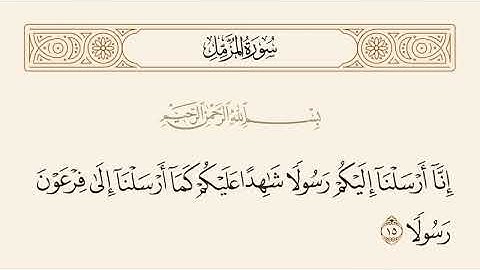 سُورَةُ المُزَّمِّلِ
بِسْمِ اللَّهِ الرَّحْمَٰنِ الرَّحِيمِ
إِنَّآ أَرْسَلْنَآ إِلَيْكُمْ رَسُولًا شَٰهِدًا عَلَيْكُمْ كَمَآ أَرْسَلْنَآ إِلَىٰ فِرْعَوْنَ
رَسُولًا ١٥